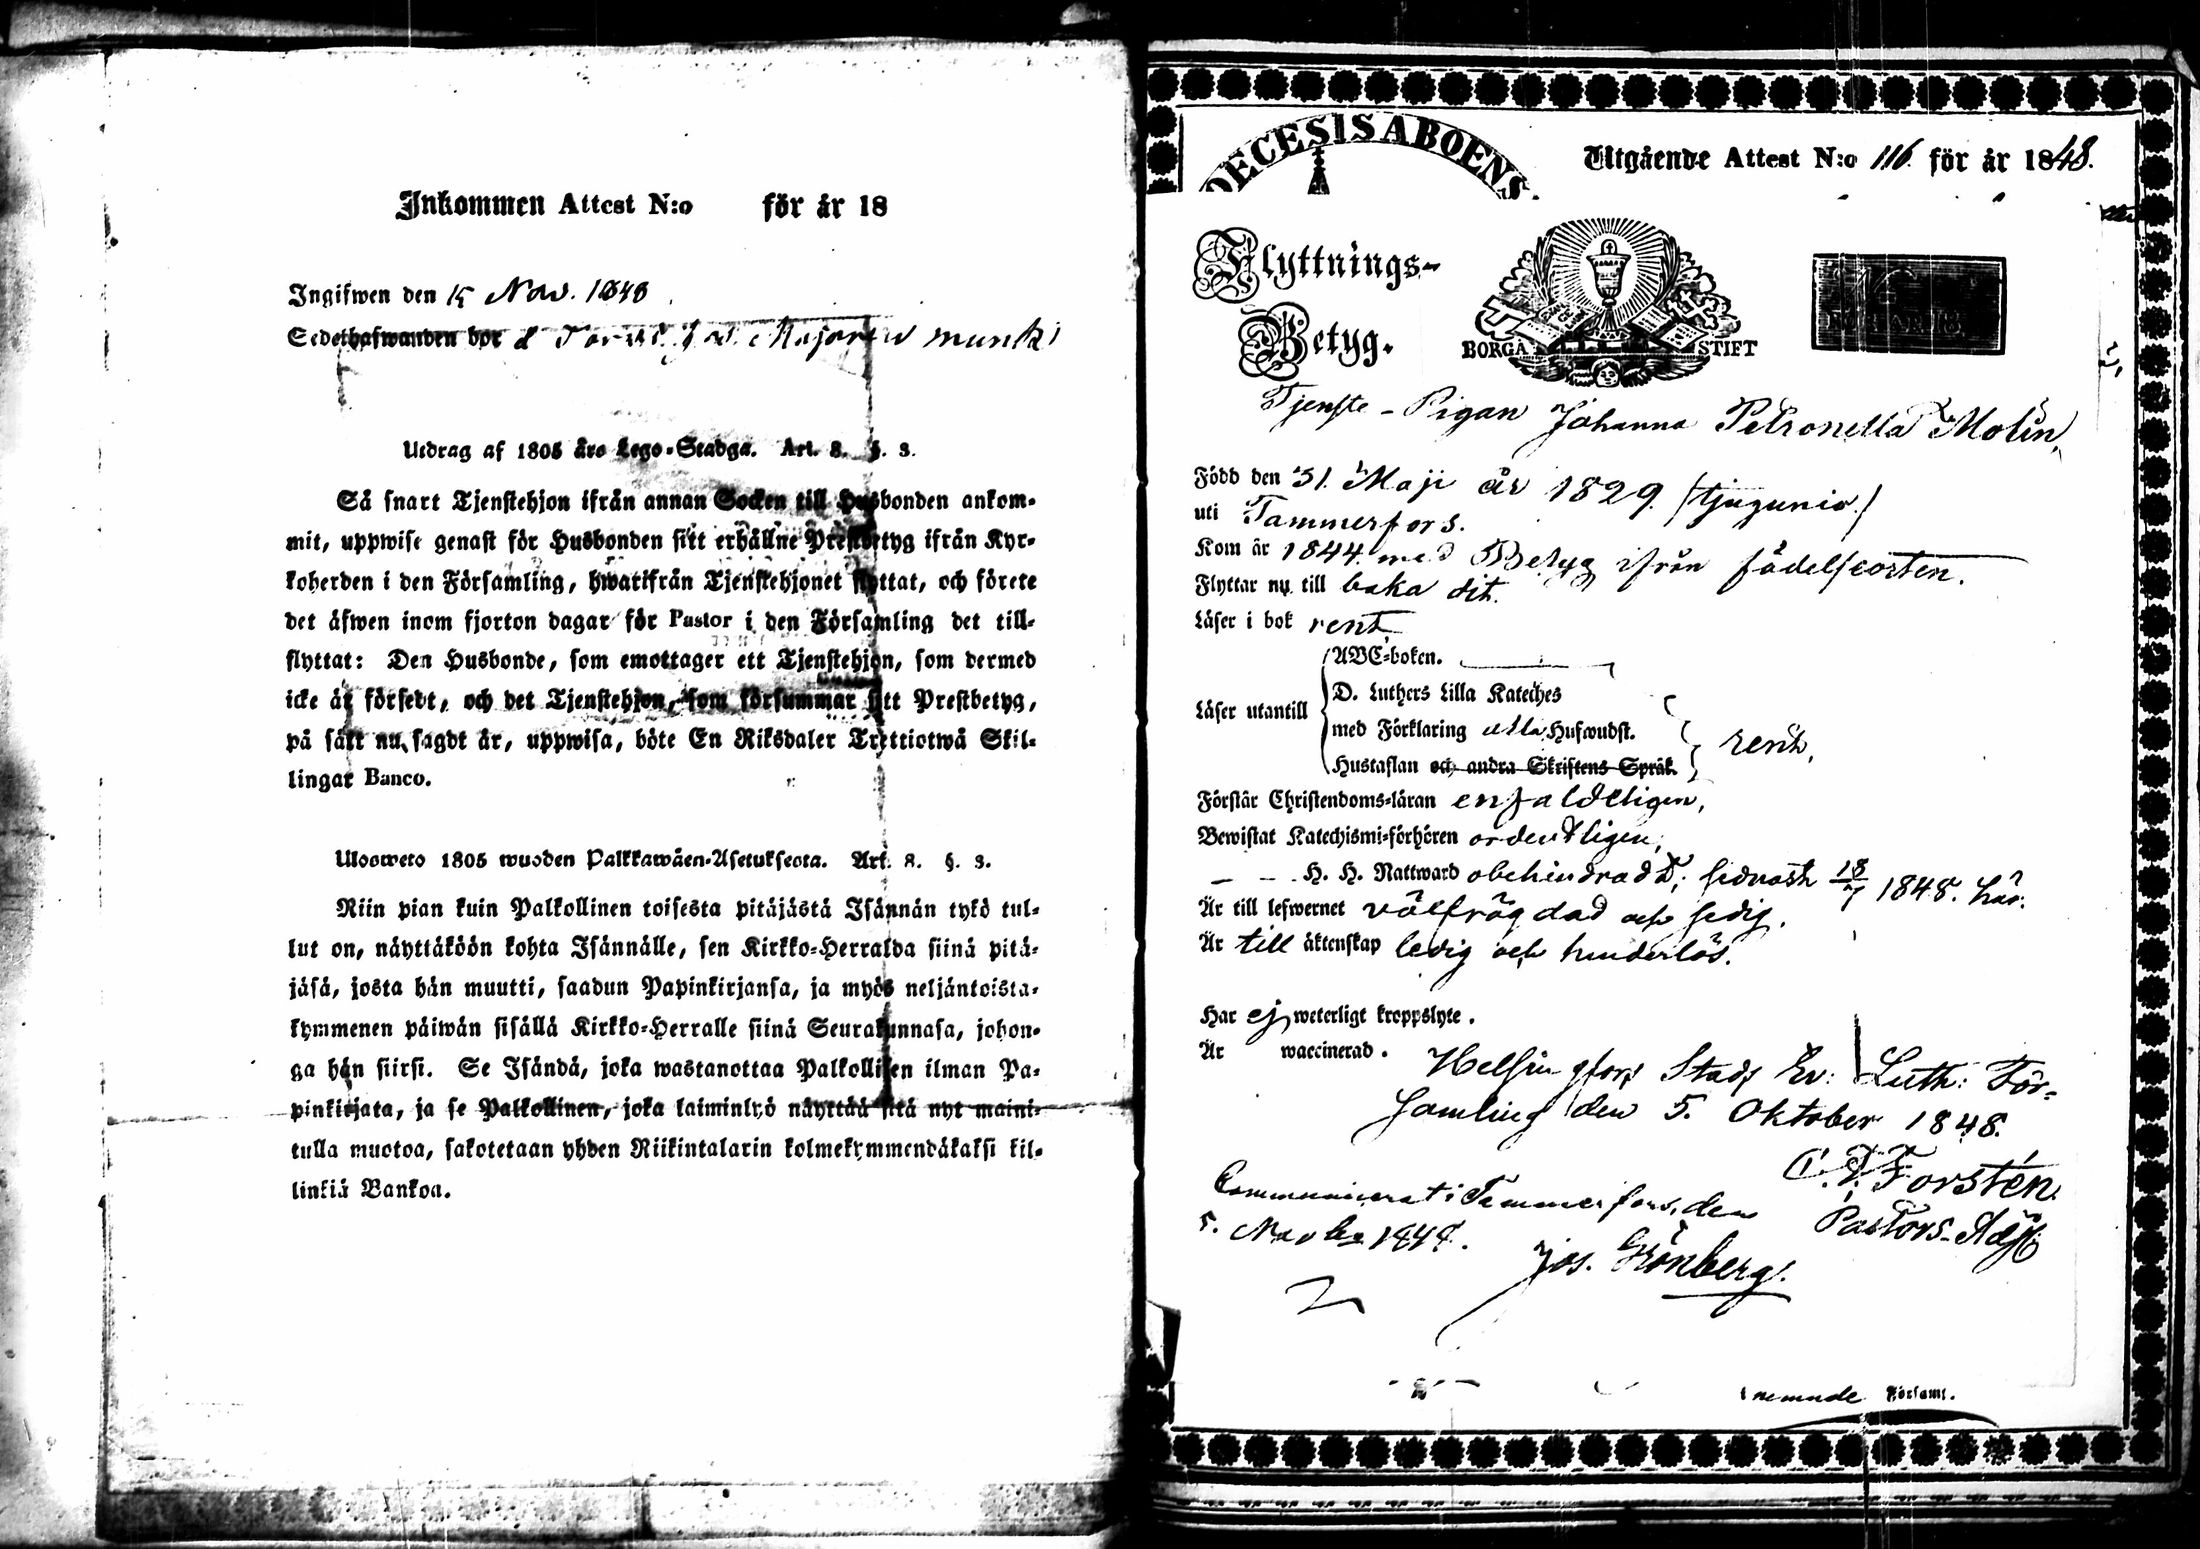 Inkommen Attest N:o för år 18
Ingifwen den 15 Nov. 1848
Sedelhafwanden bor
Utdrag af 1805 års Lego-Stadga. Art. 8. §. 3.
Så snart Tjenstehjon ifrån annan Socken till Husbonden ankom-
mit, uppwise genast för Husbonden sitt erhållne Prestbetyg ifrån Kyr-
koherden i den Församling, hwarifrån Tjenstehjonet flyttat, och förete
det äfwen inom fjorton dagar för Pastor i den Församling det till-
flyttat: Den Husbonde, som emottager ett Tjenstehjon, som dermed
icke är försedt, och det Tjenstehjon, som försummar sitt Prestbetyg,
på sätt nu sagdt är, uppwisa, böte En Riksdaler Trettiotwå Skil-
lingar Banco.
Ulosweto 1805 wuoden Palkkawäen-Asetuksesta. Art. 8. §. 3.
Niin pian kuin Palkollinen toisesta pitäjästä Isännän tykö tul-
lut on, näyttäköön kohta Isännälle, sen Kirkko-Herralda siinä pitä-
jäsä, josta hän muutti, saadun Papinkirjansa, ja myös neljäntoista-
kymmenen päiwän sisällä Kirkko-Herralle siinä Seurakunnasa, johon-
ga hän siirsi. Se Isändä, joka wastanottaa Palkollisen ilman Pa-
pinkirjata, ja se Palkollinen, joka laiminlyö näyttää sitä nyt maini-
tulla muotoa, sakotetaan yhden Riikintalarin kolmekymmendäkaksi kil-
linkiä Bankoa.
DECESIS ABOENS.
Utgående Attest N:o 116 för år 1848.
Flyttnings-
Betyg.
BORGÅ STIFT
Tjenste-Pigan Johanna Petronella Molin,
Född den 31. Maji år 1829. /tjugunio./
uti Tammerfors.
Kom år 1844 med Betyg ifrån födelseorten.
Flyttar nu till baka dit.
Läser i bok rent,
ABC-boken.
D. Luthers Lilla Kateches
Läser utantill
med Förklaring Hufwudst.
Hustaflan och andra Skriftens Språk.
rent,
Förstår Christendoms-läran enfaldeligen,
Bewistat Katechismi-förhören ordentligen,
– – H. H. Nattward obehindrad, sednast 1848. här.
Är till lefwernet välfrägdad och sedig.
Är till äktenskap ledig och hinderlös.
Har ej weterligt kroppslyte.
Är waccinerad.
Helsingfors Stads Ev: Luth: För-
samling den 5. Oktober 1848.
Forstén.
Pastors-Adj:
Communicerat i Tammerfors, den
5. Novbr 1848.
Jos. Grönberg.
Församl.